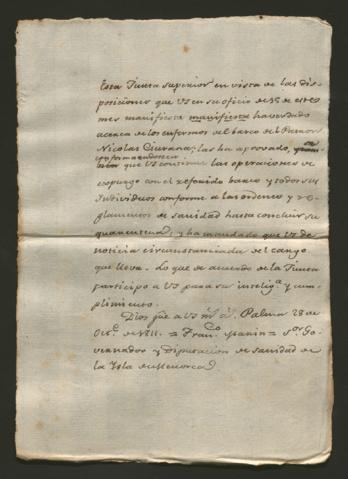 Esta Junta superior en vista de las dis
posiciones que VS en su oficio de 15 de este
mes manifiesta manifiesta haver dado
acerca de los enfermos del barco del Patron
Nicolas Ciurana; las ha aprovado,
conformandose en
que VS continue las operaciones de
espurgo con el referido barco y todos sus
Individuos conforme a las ordenes y re
glamentos de sanidad hasta concluir su
quarentena, y ha mandado que VS dé
noticia circunstanciada del cargo
que lleva. Lo que de acuerdo de la Junta
participo a VS para su inteligª y cum
plimiento.
Dios gue a VS ms as. Palma 28 de
Octe de 1811. = Franco = Sor Go
vernador y Diputacion de sanidad de
la Isla de Menorca